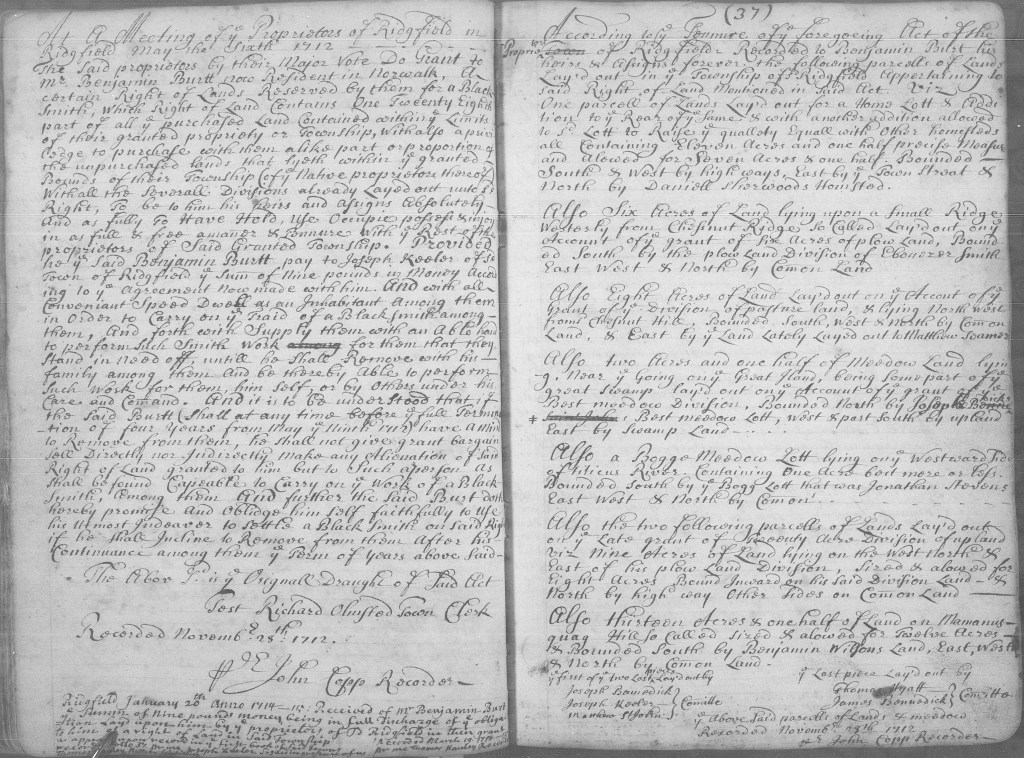 At A Meeting of yᵉ Proprietors of Ridgfield in
Ridgfield May the Sixth 1712
The Said proprietors by their Major Vote Do Grant to
Mʳ. Benjamin Burtt now Resident in Norwalk, A-
certain Right of Lands Reserved by them for a Black-
Smith, Which Right of Land Contains One Twenty Eighth
part of all yᵉ purchased Land Contained within yᵉ Limits
of their granted propriety or Township, With also a privi
ledge to purchase with them alike part or proportion of
the unpurchased lands that lyeth within yᵉ granted
Bounds of their Township (of yᵉ Native proprietors thereof)
Withall the Severall Divisions already Layed out unto sᵈ
Right, To be to him his heirs and asigns Absolutely
And as fully To Have Hold, Use Occupie possess & injoy
in as full & free a maner & Tennure With yᵉ Rest of the
proprietors of Said Granted Township. Provided
he yᵉ Said Benjamin Burtt pay to Joseph Keeler of sᵈ
Town of Ridgfield yᵉ Sum of Nine pounds in Money Accord
ing to yᵉ Agreement Now made with him. And with all-
Conveniant Speed Dwell as an Inhabitant Among them
in Order to Carry on yᵉ Traid of a Black Smith among-
them, And forth with Supply them with an Able hand
to perform Such Smith Work among for them that they
Stand in Need off; untill he Shall Remove with his-
family among them And be thereby Able to perform-
Such Work for them, him Self, or by Others under his
Care and Comand. And it is to be under stood that if
the Said Burtt Shall at any time before yᵉ full Termina
tion of four Years from May yᵉ Ninth 1712 have A Mind
to Remove from them, he Shall not give grant bargain
Sell Directly nor Indirectly make any Alienation of Said
Right of Land granted to him but to Such a person As
Shall be found Capeable to Carry on yᵉ Work of a Black
Smith, Among them And further the Said Burt doth
hereby promise And Obledge him Self faithfully to Use
his Utmost Indeavor to Settle a Black Smith on Said Right
if he Shall Incline to Remove from them After his
Continuance among them yᵉ Term of Years above Said-
The Above is yᵉ Orignall Draught of Said Act
Test Richard Olmsted Town Clerk
Recorded Novembʳ yᵉ 28ᵗʰ 1712.
pʳ John Copp Recorder-
Ridgfield January 20ᵗʰ Anno 1714-15: Received of Mʳ Benjamin Burt
yᵉ Summ of Nine pounds money being in full Discharge of yᵉ obliga
tion Lay'd upon him by yᵉ proprietors of sᵈ Ridgfield in their grant
to him of a right of Land in said Township
(37)
According to yᵉ Tennure of yᵉ foregoeing Act of the
Proprietʳˢ town of Ridgfield Recorded to Benjamin Burt his
heirs & Asigns forever, the following parcells of Lands
Lay'd out in yᵉ Township of Ridgfield Appertaining to
said Right of Land Mentioned in Said Act. Viz
One parcell of Lands Lay'd out for a Home Lott & Addi
tion to yᵉ Rear of yᵉ Same & with another addition allowed
to sᵈ Lott to Raise yᵉ quallety Equall with Other homesteds
all Containing Eleven Acres and one half precise Measure
and Alowed for Seven Acres & one half. Bounded
South & West by high ways, East by yᵉ Town Street &
North by Daniell Sherwoods Homsted.
Also Six Acres of Land lying upon a Small Ridge
Westerly from Chesnut Ridge so Called Lay'd out on yᵉ
Account of yᵉ grant of Six Acres of plow Land, Bound-
ed South by the plow Land Division of Ebonezer Smith
East West & North by Comon Land
Also Eight Acres of Land Lay'd out on yᵉ Account of yᵉ
Grant of yᵉ Division of pasture land, & lying North West
from Chesnut Hill, Bounded South, West & North by Comon
Land, & East by yᵉ Land Lately Layed out to Matthew Seamer
Also two Acres and one half of Meedow Land lying
Near yᵉ Going on yᵉ Great Iland, being Some part of yᵉ
Great Swamp lay'd out on yᵉ Account of yᵉ grant of yᵉ
Best meddow Division, Bounded North by Joseph
Best meedow Lott, West & part South by upland
East by Swamp Land
Also a Bogge Meedow Lott lying on yᵉ Westward Side
of Titicus River, Containing One Acre be it more or less:
Bounded South by yᵉ Bogg Lott that was Jonathan Stevens
East West & North by Comon
Also the two following parcells of Lands Lay'd out
on yᵉ Late grant of Twenty Acre Division of upland
viz Nine Acres of Land lying on the West North &
East of his plow Land Division, Sized & alowed for
Eight Acres Bound Inward on his said Division Land &
North by high way Other Sides on Comon Land
Also thirteen Acres & one half of Land on Mamanus-
quag Hill so Called Sized & alowed for Twelve Acres-
& Bounded South by Benjamin Wilsons Land, East, West
& North by Comon Land.
yᵉ first of yᵉ two Last Lay'd out by
Joseph Bennedick
Joseph Keeler
Matthew Sᵗ John
Comitte
yᵉ Last piece Lay'd out by
Thomas Hyatt
James Bennedick
Comitte
yᵉ Above Said parcells of Lands & meedow
Recorded Novembʳ 28ᵗʰ 1712
pʳ John Copp Recorder-